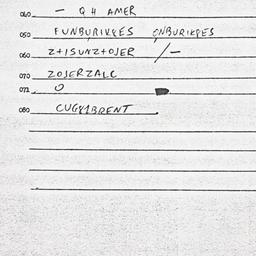 040 — Q H AMER
050 FUNBURIKYES ONBURIKPES
060 Z+ISUNZ+OJER /—
070 ZOJERZALC
072 O
080 CUGY1BRENT